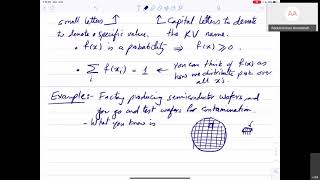 small letters Capital letters to denote
to denote a specific value. the RV name.
• f(x) is a probability ⇒ f(x) ≥ 0.
• ∑ f(xi) = 1 ← you can think of f(x) as
i how we distribute prob. over
all x's.
Example:- Factory producing semiconductor wafers and
you go and test wafers for contamination.
- What you know is
AA